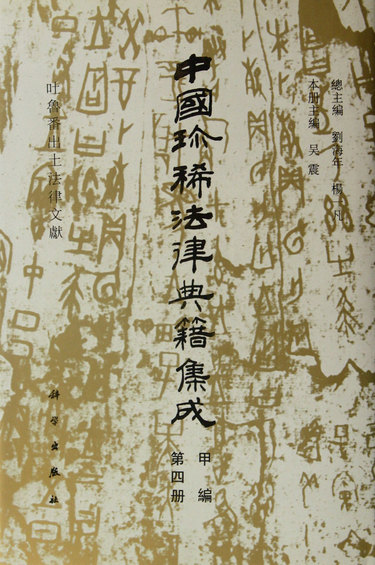 總主編 劉海年 楊一凡
本册主編 吴震
中國珍稀法律典籍集成
甲編
第四册
吐魯番出土法律文獻
科学出版社